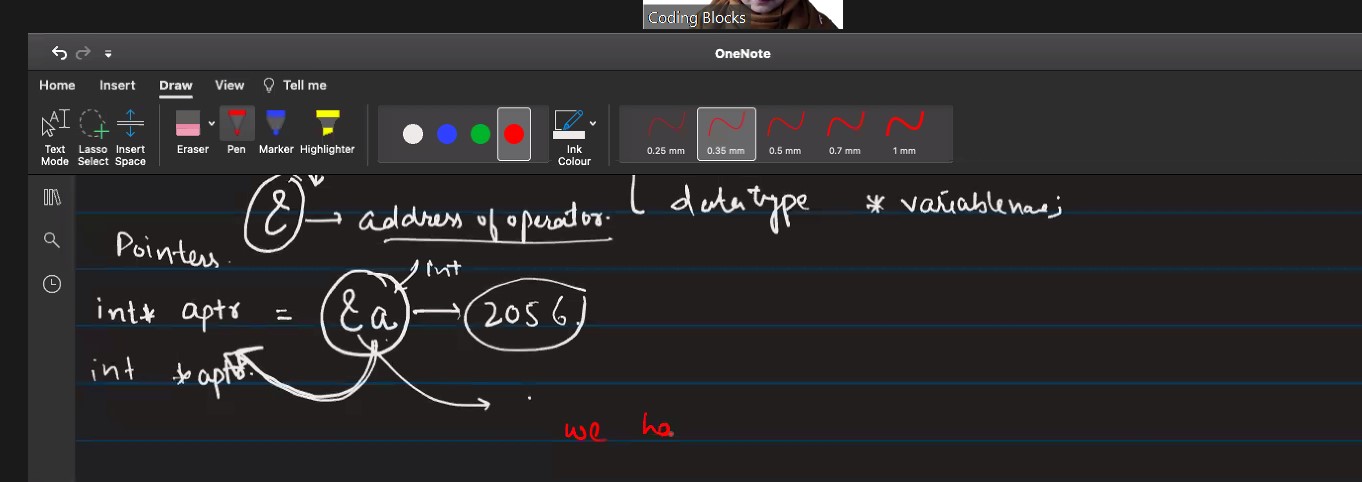 Coding Blocks
OneNote
Home Insert Draw View Tell me
Text Mode Lasso Select Insert Space Eraser Pen Marker Highlighter Ink Colour 0.25 mm 0.35 mm 0.5 mm 0.7 mm 1 mm
& → address of operator. datatype * variablename;
Pointers.
int
int* aptr = &a → 2056
int *aptr
we ha